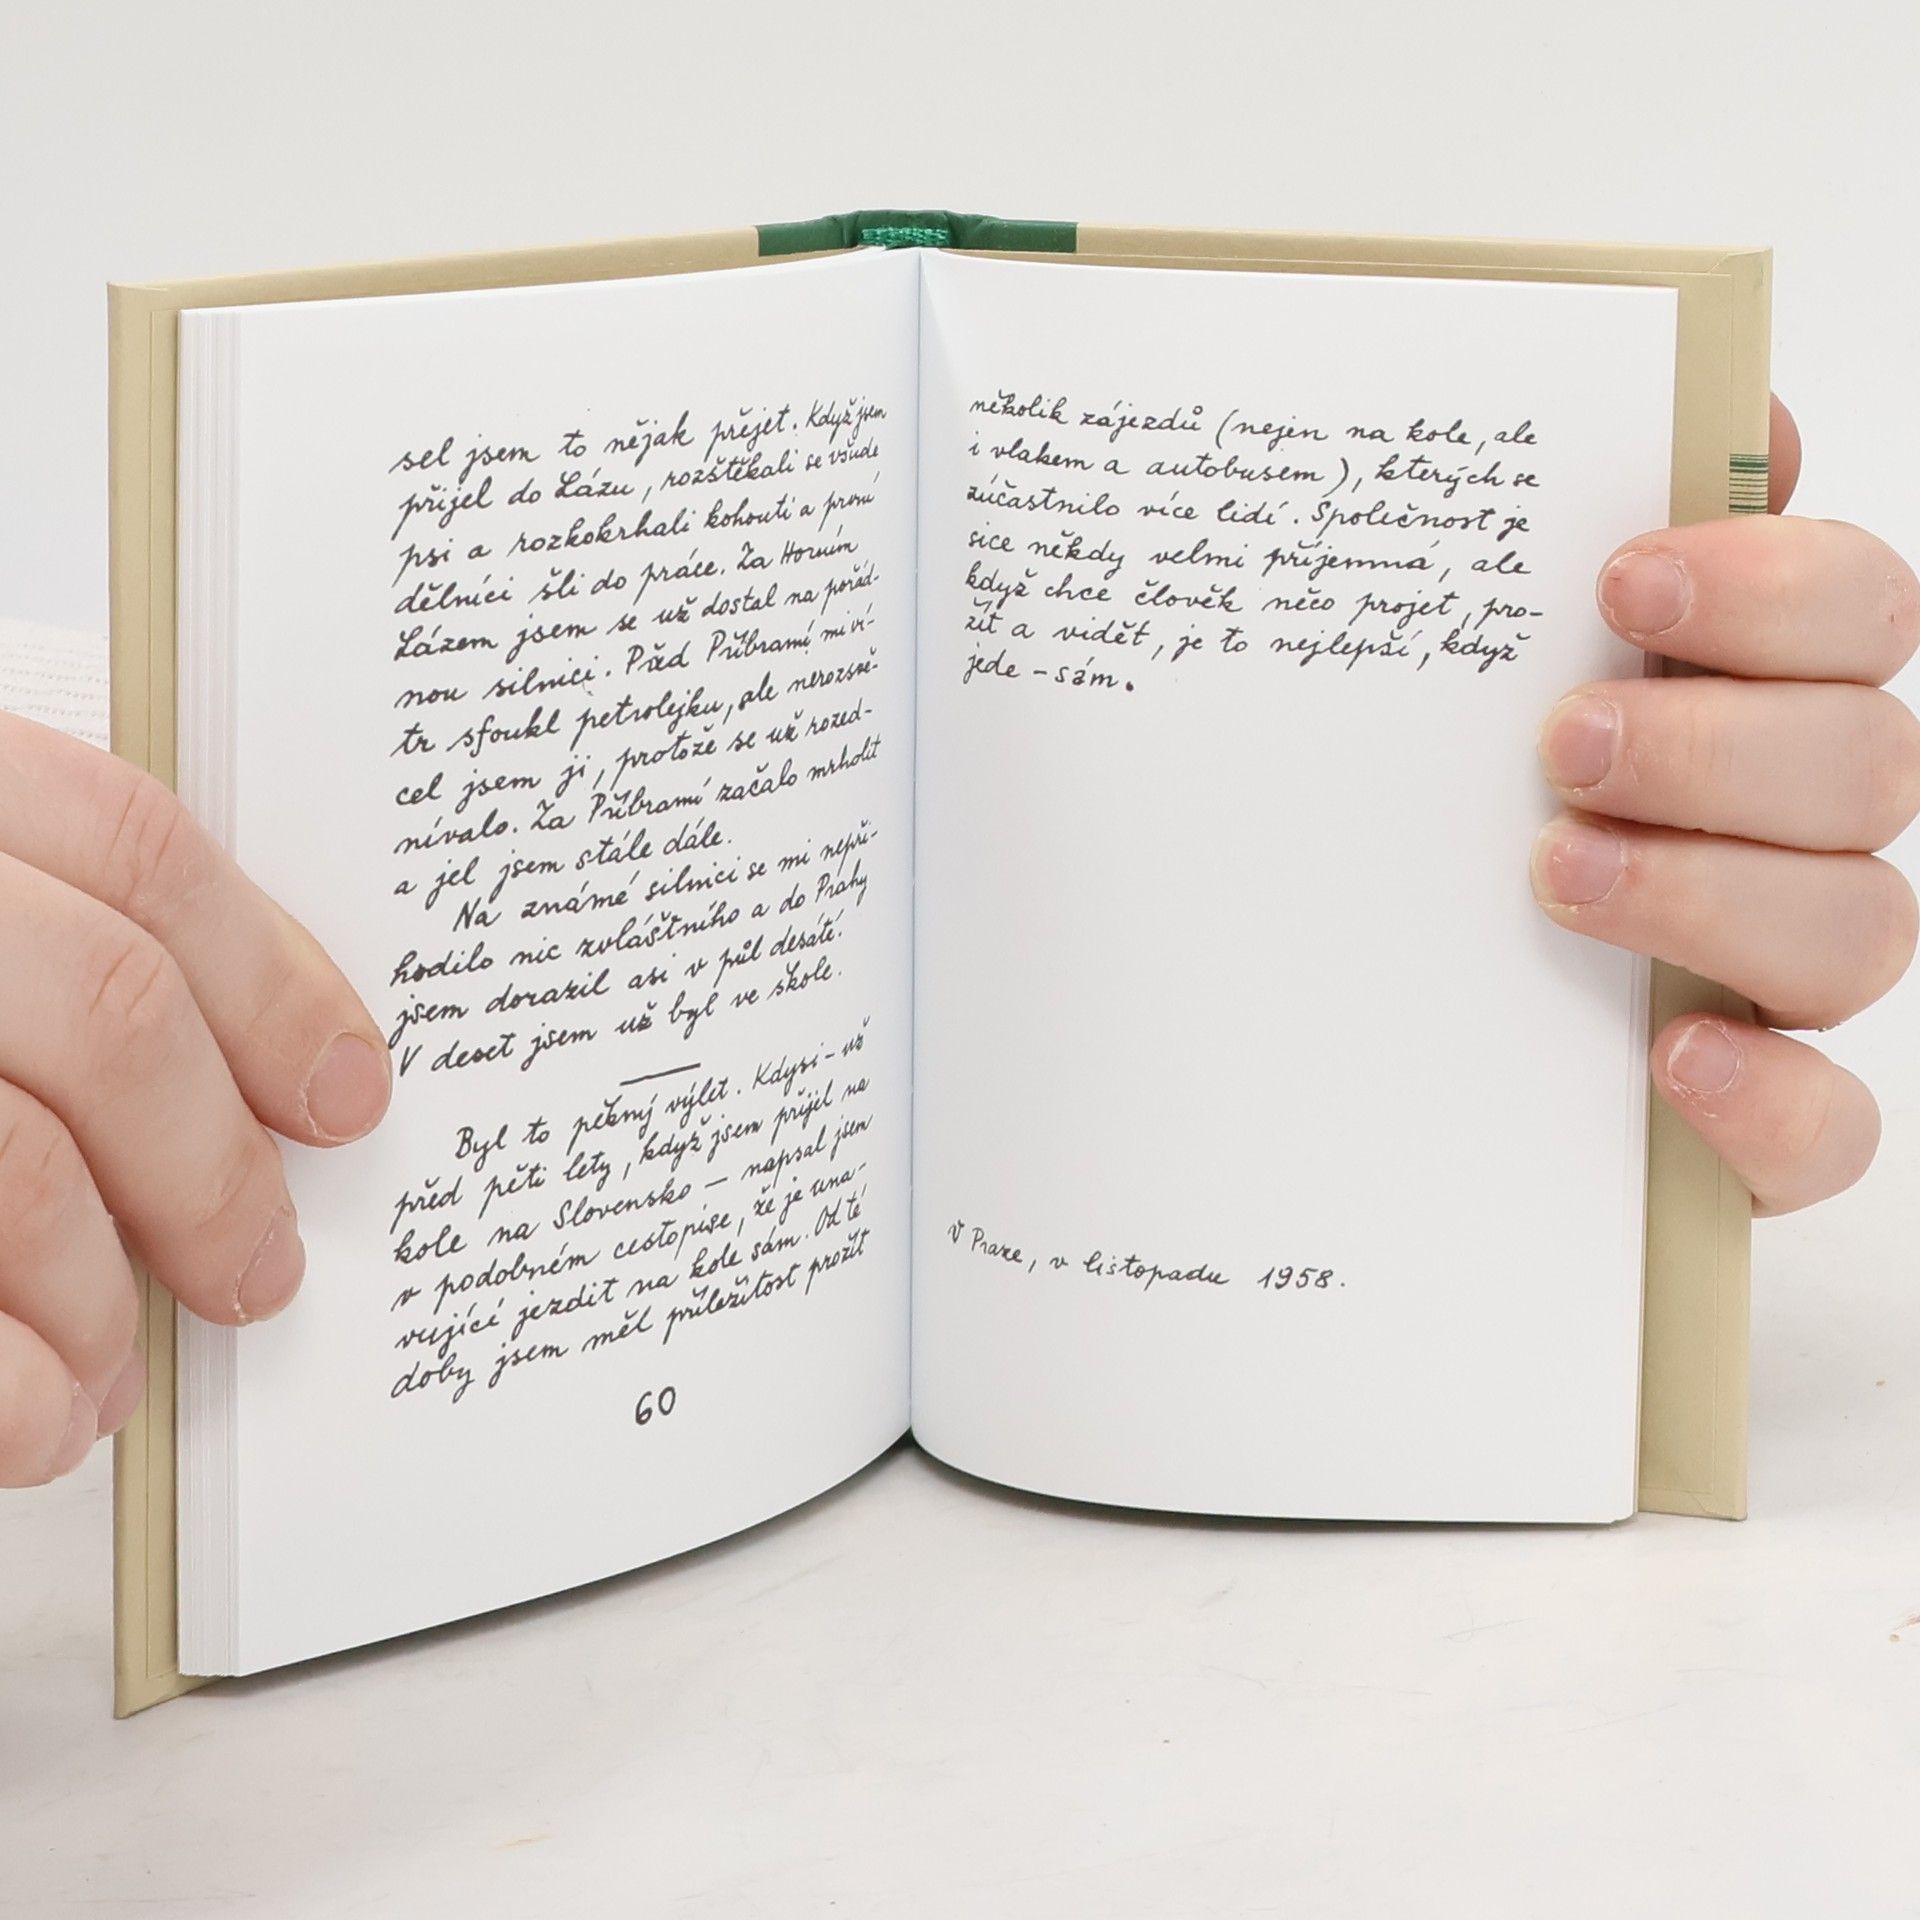 sel jsem to nějak přejet. Když jsem
přijel do Lázu, rozštěkali se všude
psi a rozkokrhali kohouti a první
dělníci šli do práce. Za Horním
Lázem jsem se už dostal na pořád-
nou silnici. Před Příbramí mi ví-
tr sfoukl petrolejku, ale nerozsvě-
cel jsem ji, protože se už rozed-
nívalo. Za Příbramí začalo mrholit
a jel jsem stále dále.
Na známé silnici se mi nepři-
hodilo nic zvláštního a do Prahy
jsem dorazil asi v půl desáté.
V deset jsem už byl ve škole.
Byl to pěkný výlet. Kdysi – už
před pěti lety, když jsem přijel na
kole na Slovensko – napsal jsem
v podobném cestopise, že je una-
vující jezdit na kole sám. Od té
doby jsem měl příležitost prožít
60
několik zájezdů (nejen na kole, ale
i vlakem a autobusem), kterých se
zúčastnilo více lidí. Společnost je
sice někdy velmi příjemná, ale
když chce člověk něco projet, pro-
žít a vidět, je to nejlepší, když
jede – sám.
V Praze, v listopadu 1958.